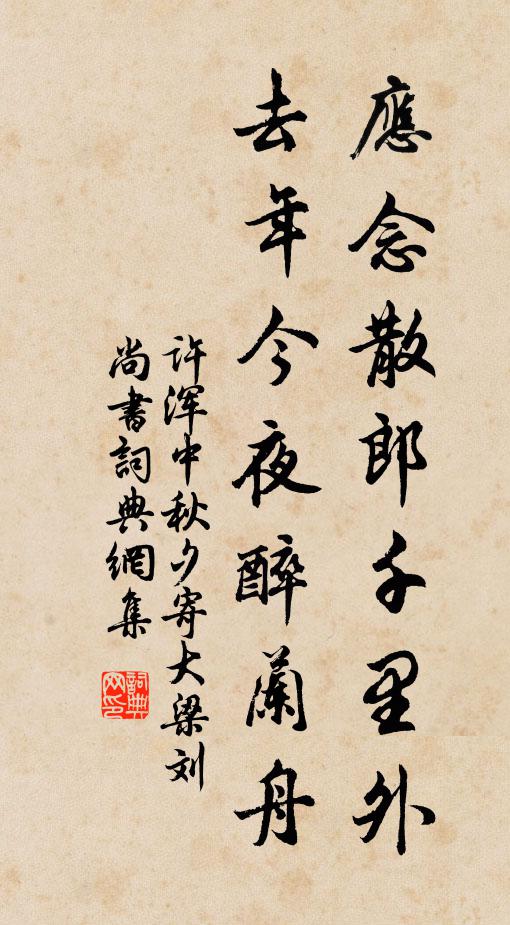 應念散郎千里外
去年今夜醉蘭舟
许浑中秋夕寄大梁刘
尚書詞典網集
詞典
网印